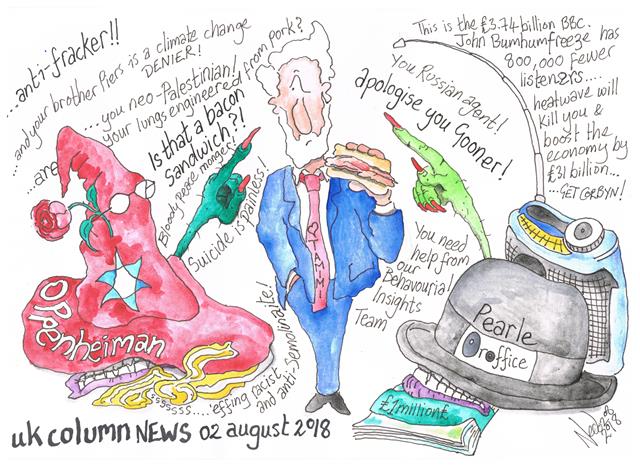 ...anti-fracker!!
...and your brother Piers is a climate change
DENIER!
...you neo-Palestinian!
...are your lungs engineered from pork?
Is that a bacon
Sandwich?!
Bloody peace monger!
Suicide is painless!
This is the £3.74 billion BBC.
John Bumhumfreeze has
800,000 fewer
listeners....
heatwave will
kill you &
boost the
economy by
£31 billion...
...GET CORBYN!
You Russian agent!
apologise you Gooner!
You need
help from
our
Behavourial
Insights
Team
TAMIMI
OPPenheiman
Pearle
office
£1million£
ssssss.....'effing racist
and anti-semolinaite!
uk column NEWS 02 august 2018